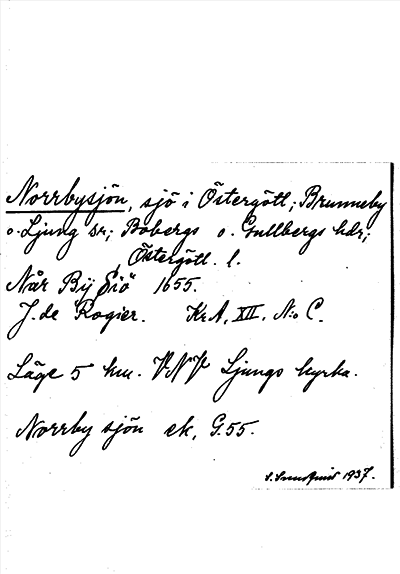 Norrbysjön, sjö i Östergötl; Brunneby
o. Ljung sr; Bobergs o. Gullbergs hdr;
Östergötl. l.
Når Bÿ Siö 1655.
J. de Rogier. KrA, XII, N:o C.
Läge 5 km. VNV Ljungs kyrka.
Norrby sjön ek, G.55.
1937.